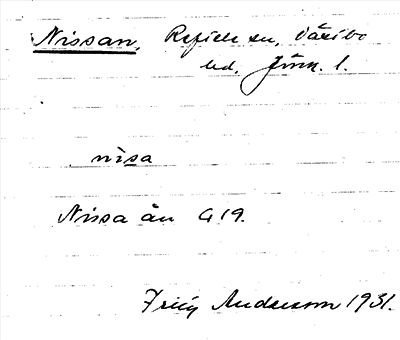 Nissan, Reftele sn, Västbo
hd, Jönk. l.
nìsa
Nissa ån G 19.
Fritz Andersson 1931.